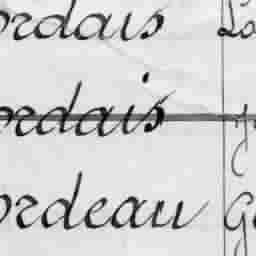 ordais
ordais
ordeau